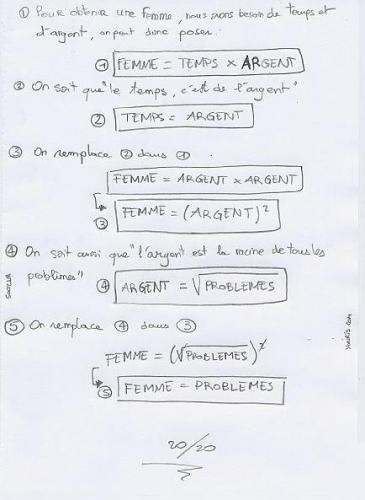 ① Pour obtenir une femme, nous avons besoin de temps et
d'argent, on peut donc poser :
① FEMME = TEMPS × ARGENT
② On sait que "le temps, c'est de l'argent"
② TEMPS = ARGENT
③ On remplace ② dans ①
FEMME = ARGENT × ARGENT
③ FEMME = (ARGENT)²
④ On sait aussi que "l'argent est la racine de tous les
problèmes"
④ ARGENT = √PROBLEMES
⑤ On remplace ④ dans ③
FEMME = (√PROBLEMES)²
⑤ FEMME = PROBLEMES
20/20